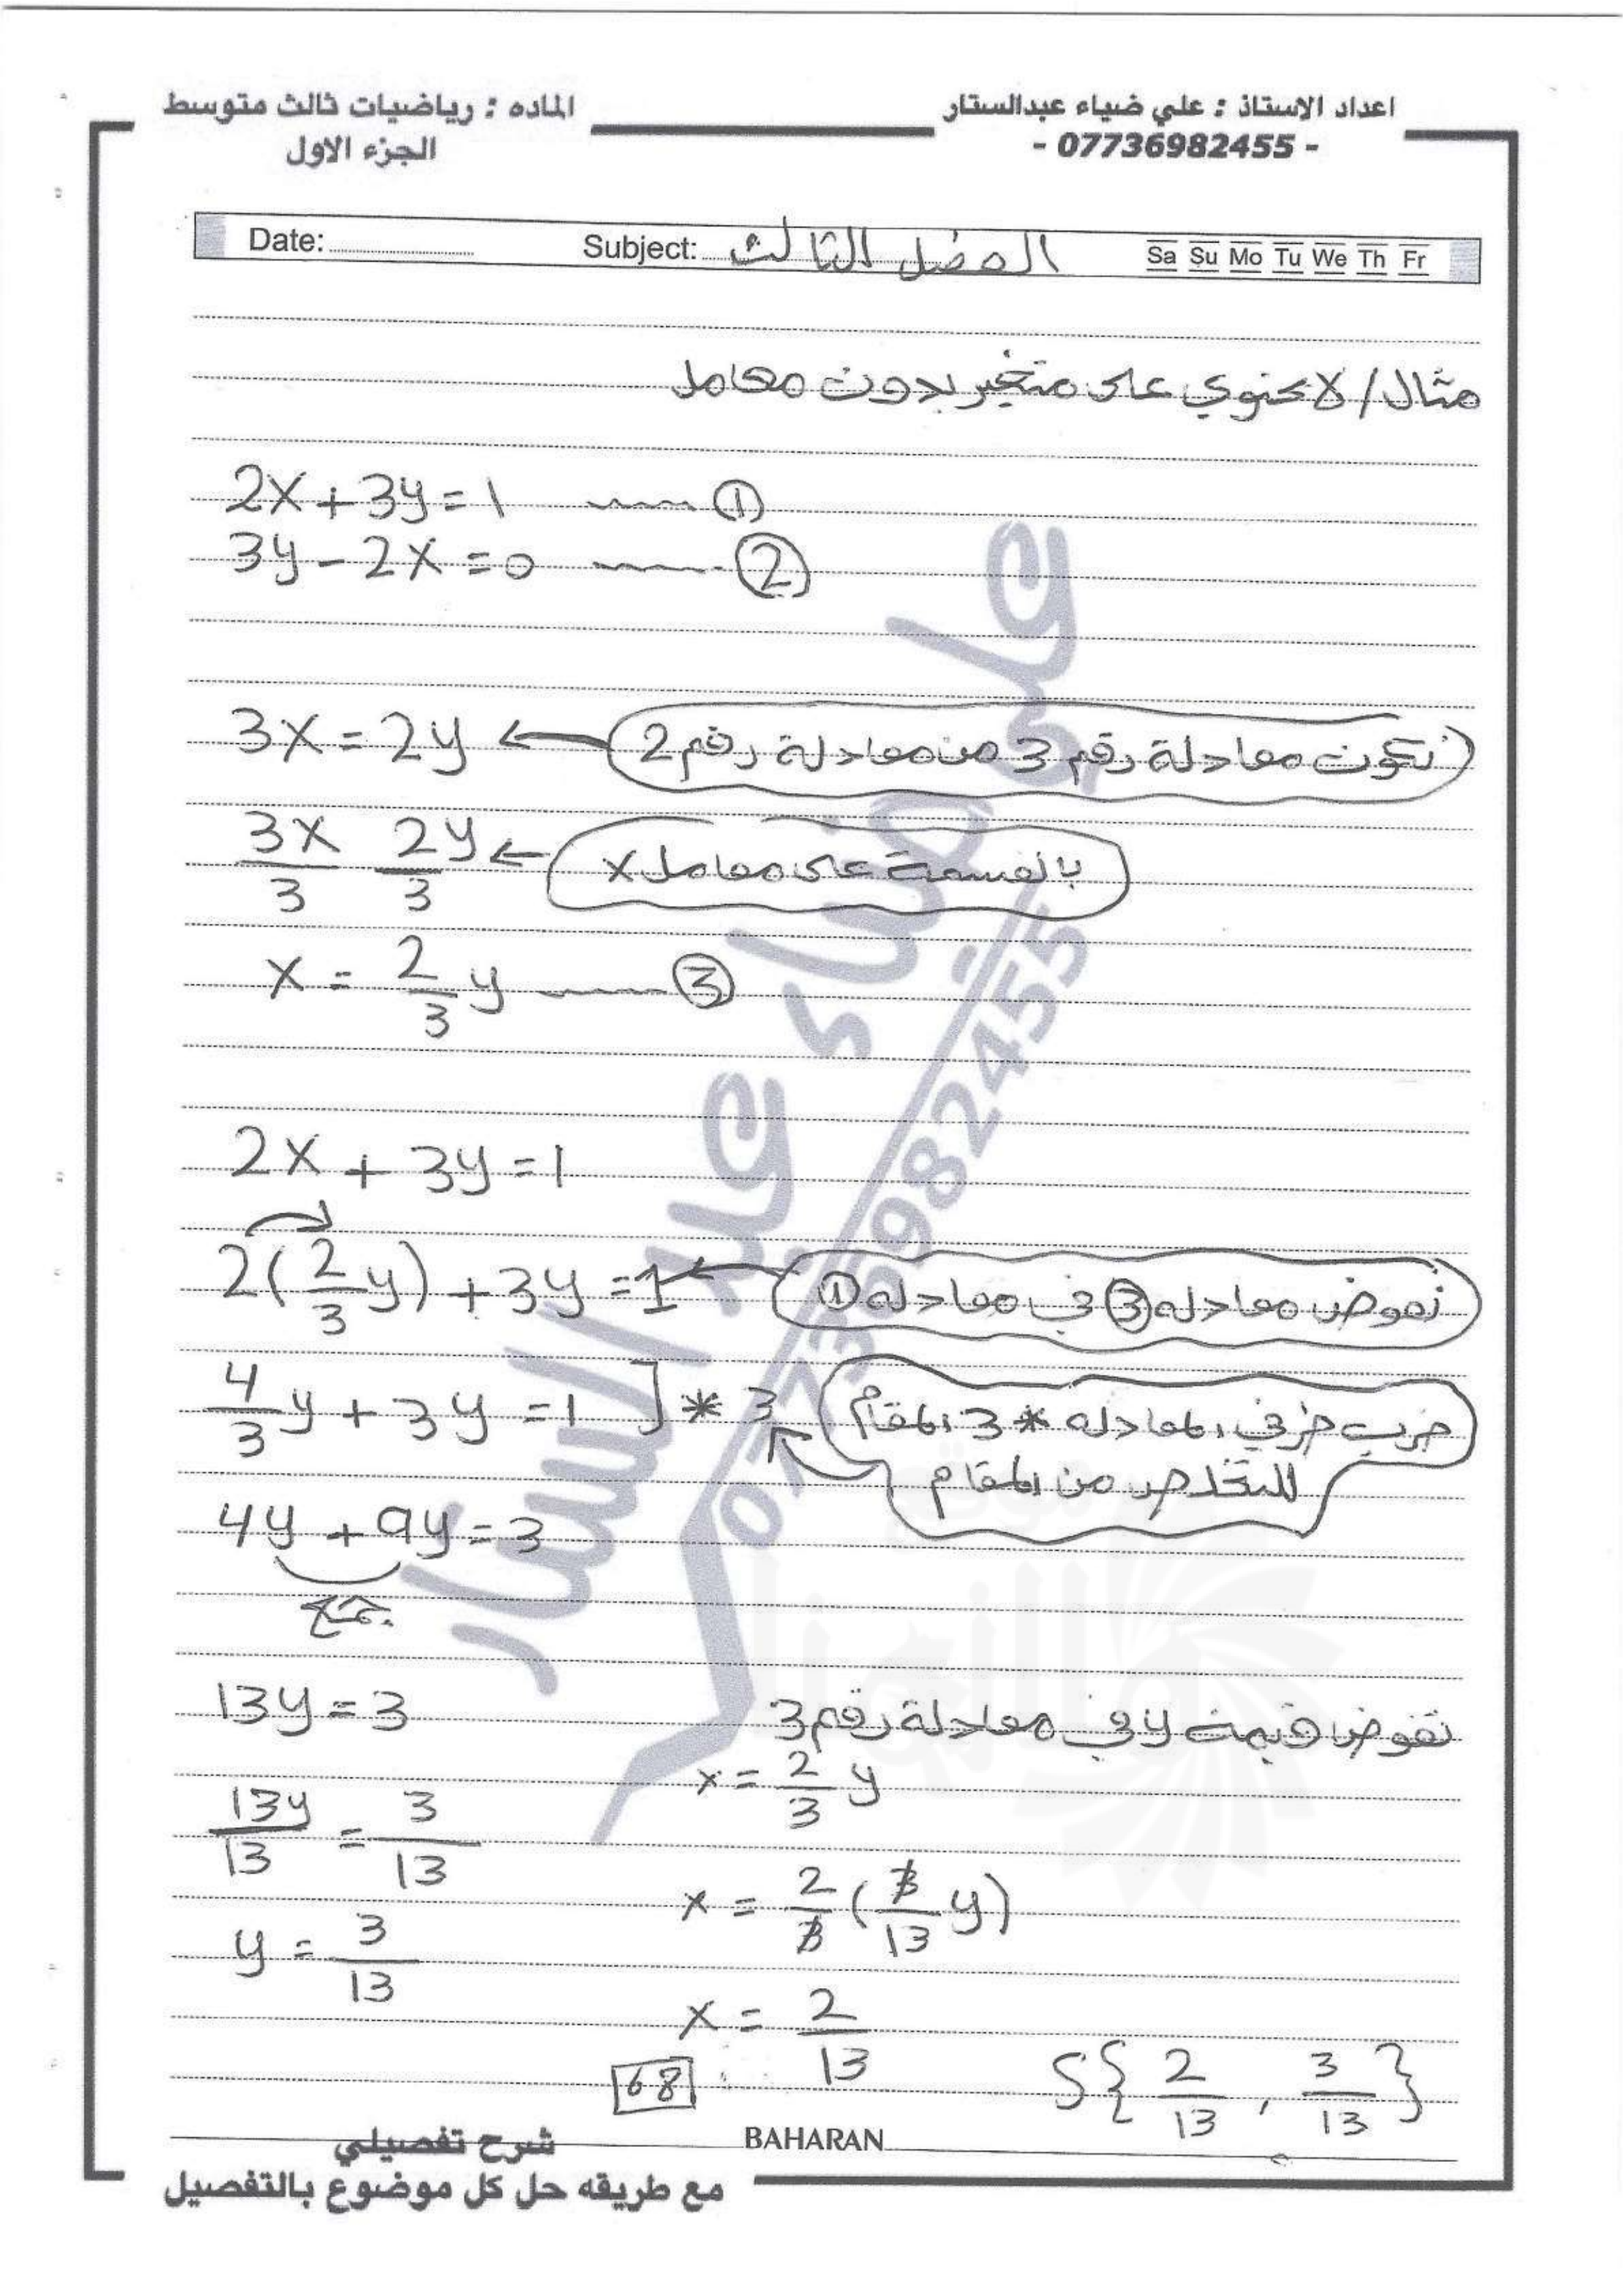 اعداد الاستاذ : علي ضياء عبدالستار
- 07736982455 -
الماده : رياضيات ثالث متوسط
الجزء الاول
Date: Subject: الفصل الثالث Sa Su Mo Tu We Th Fr
مثال / لا تحتوي على متغير بدون معامل
2x + 3y = 1 ①
3y - 2x = 0 ②
3x = 2y ← نكون معادلة رقم 3 من معادلة رقم 2
3x/3 2y/3 ← بالقسمة على معامل x
x = 2/3 y ③
2x + 3y = 1
2(2/3 y) + 3y = 1 ← نعوض معادله ③ في معادله ①
4/3 y + 3y = 1 ] * 3 ضرب طرفي المعادله * 3 المقام
للتخلص من المقام
4y + 9y = 3
جمع
13y = 3
13y/13 = 3/13
y = 3/13
نعوض قيمة y في معادلة رقم 3
x = 2/3 y
x = 2/3 (3/13 y)
x = 2/13
S{ 2/13 , 3/13 }
68
BAHARAN
شرح تفصيلي
مع طريقه حل كل موضوع بالتفصيل
علي ضياء عبد الستار
07736982455